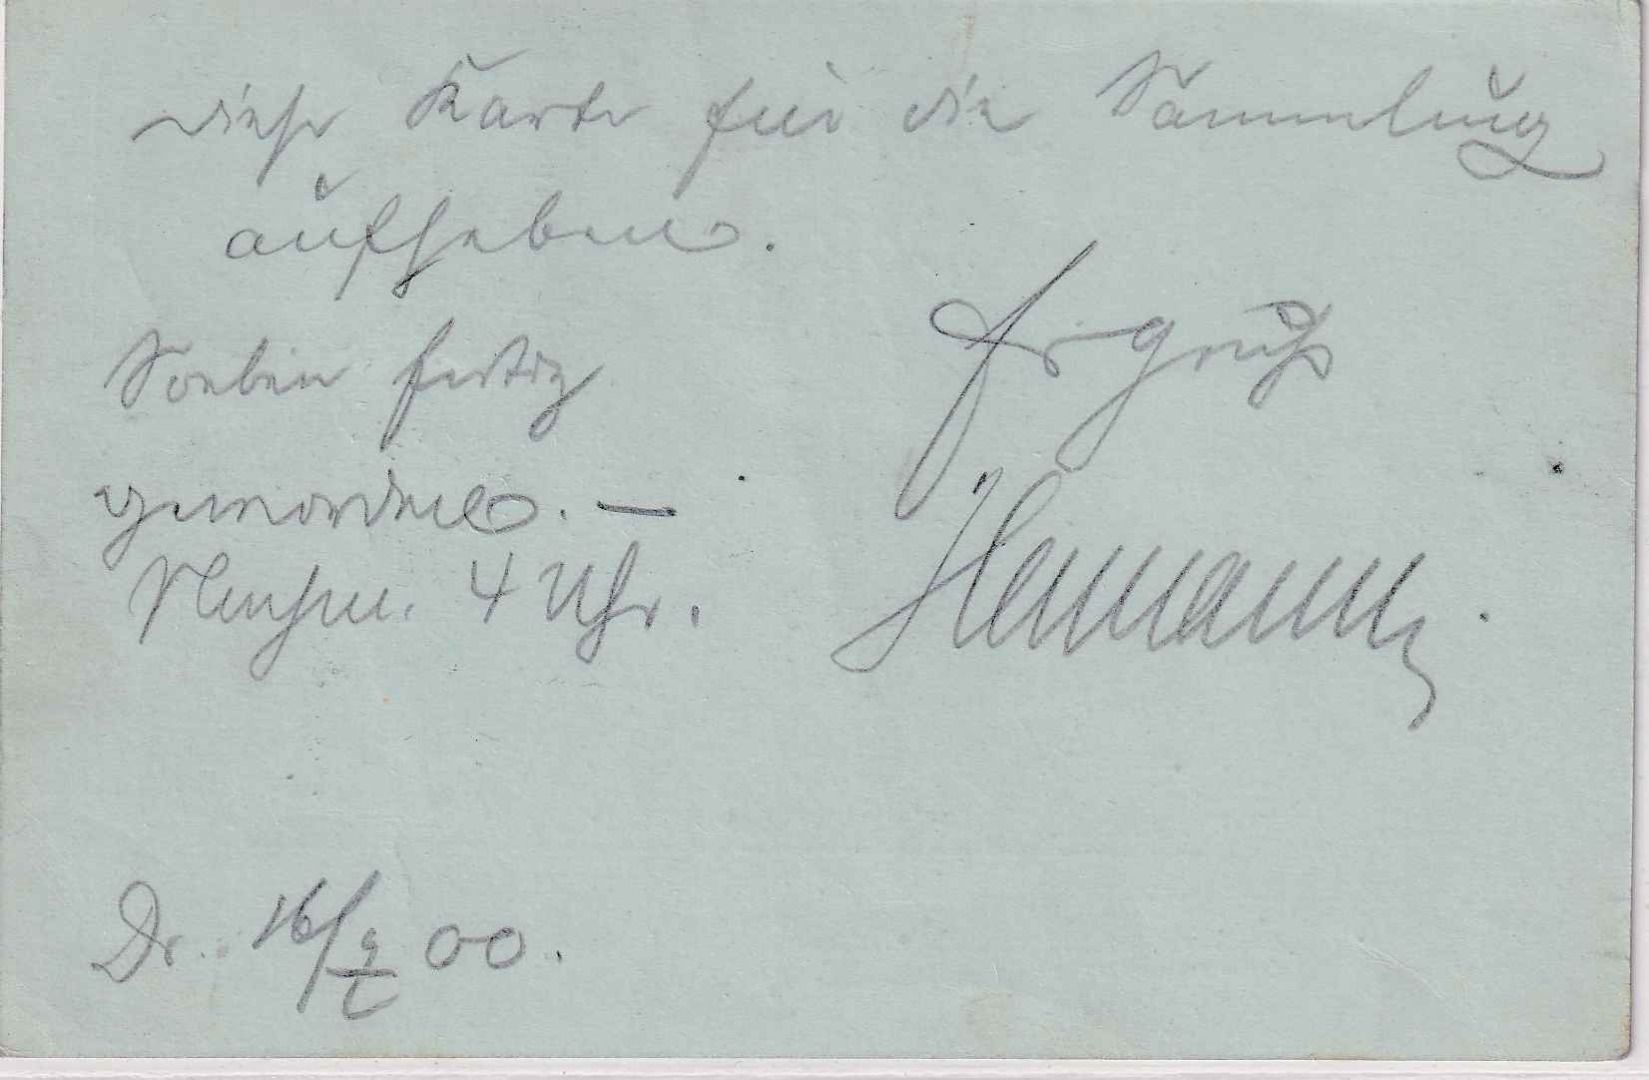 Diese Karte für die Sammlung
aufheben.
Soeben fertig
geworden. —
Nachm. 4 Uhr.
Gruß
Hermann
Dr. 16/9 00.